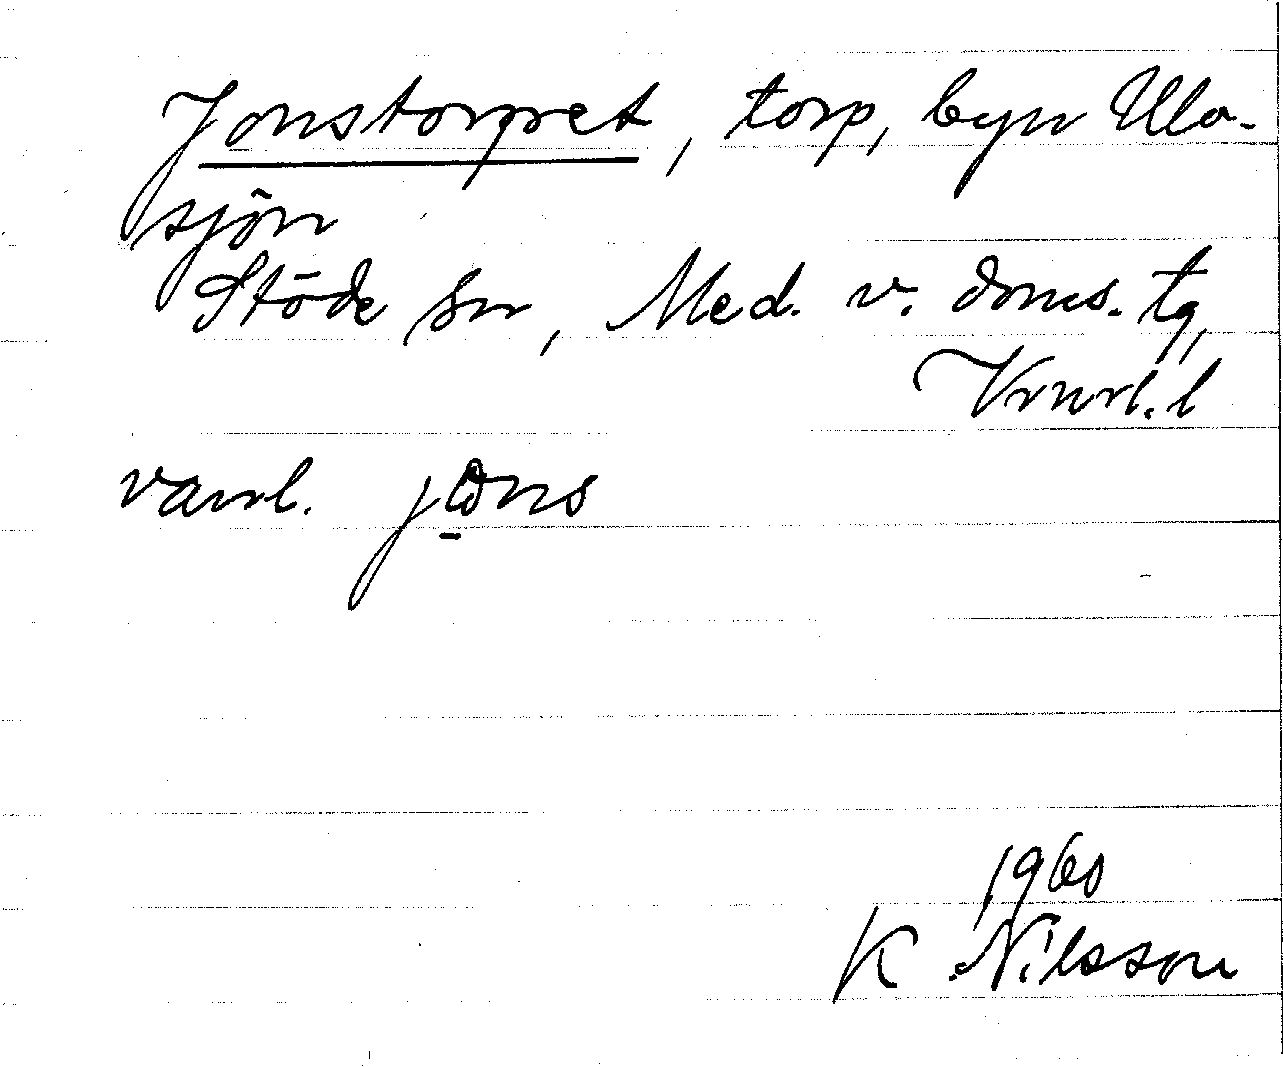 Jonstorpret, torp, byn Ulva-
sjön
Stöde sn, Med. v. doms. tg,
Vrnrl. l
vanl. jons
1960
K Nilsson